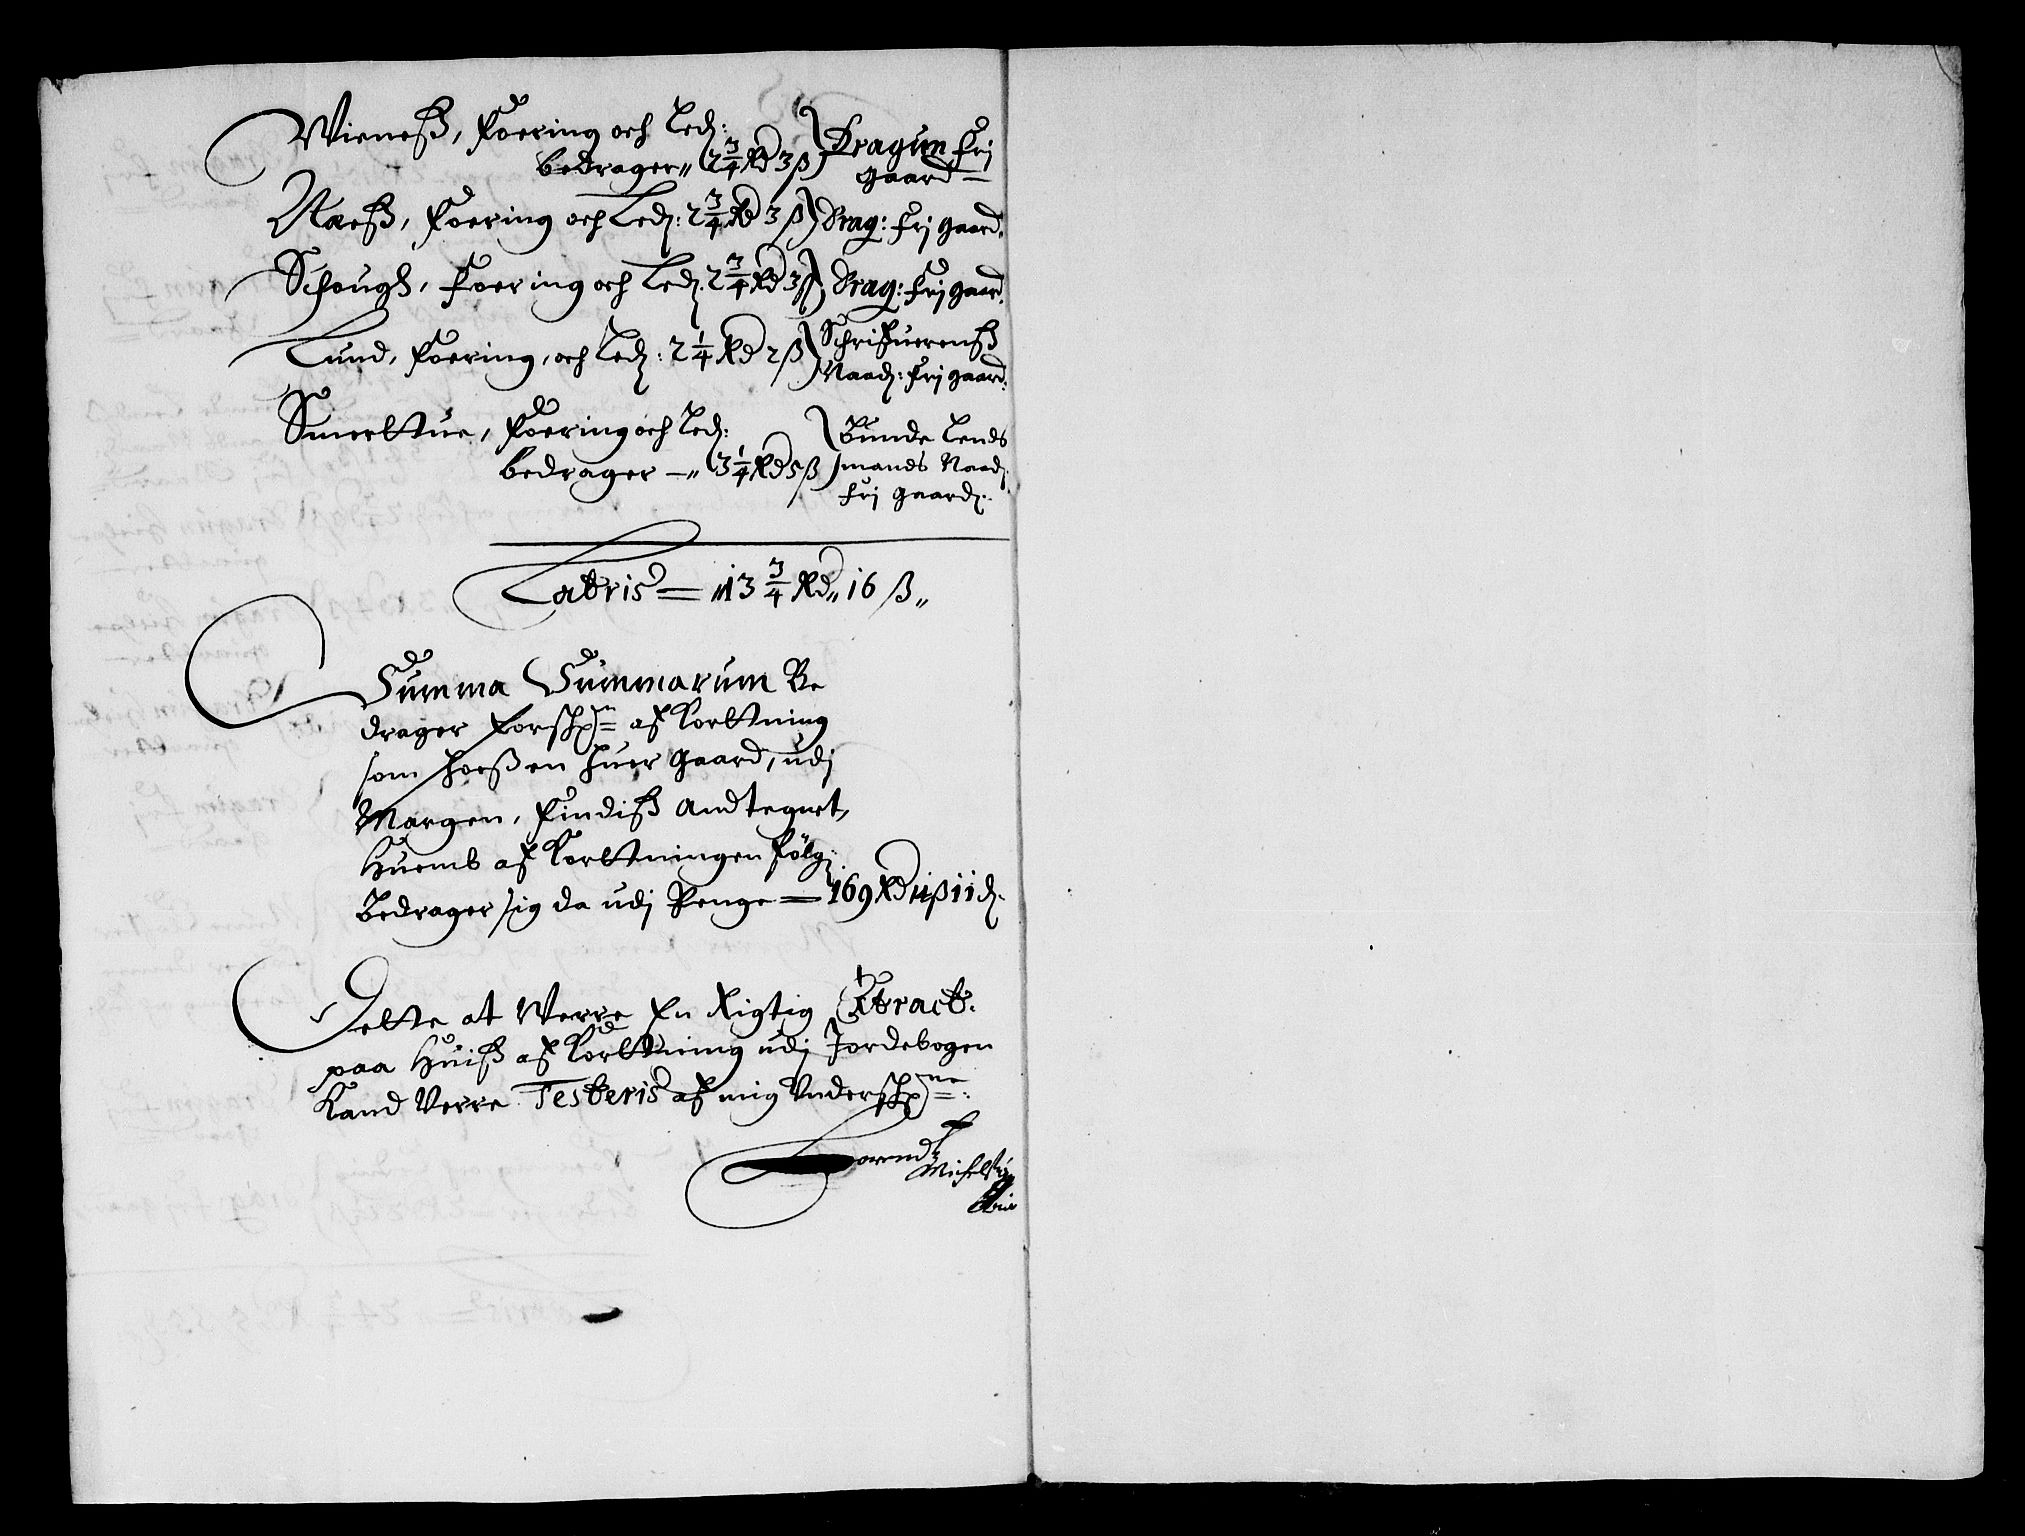 Wieneß, Foering och Led:
bedrager„ 2 3/4 Rd 3 ß
Dragun fri
gaard
Næeß, Foering och Led: 2 3/4 Rd 3 ß Drag: frj gaard.
Schough, Foering och Led: 2 3/4 Rd 3 ß Drag: Frj gaard.
Lund, Foering, och Led: 2 1/4 Rd 2 ß
Schrifuerenß
Naad: frj gaard:
Smorttue, Foering och Led:
bedrager — „ 3 1/4 Rd 5 ß
Bunde Lends
mands Naad:
frj gaard:
Latris = „13 3/4 Rd„ 16 ß„
Summa Summarum Be
drager forschr: n af Kortning
som hoeß en huer gaard, udj
Margen, Findiß Andtegnet,
Huemb af Kortningen følg:
Bedrager sig da udj Penge = 169 Rd 1 ß 11 d.
Dette at Werre En Rigtig Extract.
paa Huiß af Kortning udj Jordebogen
Kand Verre Testeris af mig Underschr: ne
Lorendtz
Michelsøn